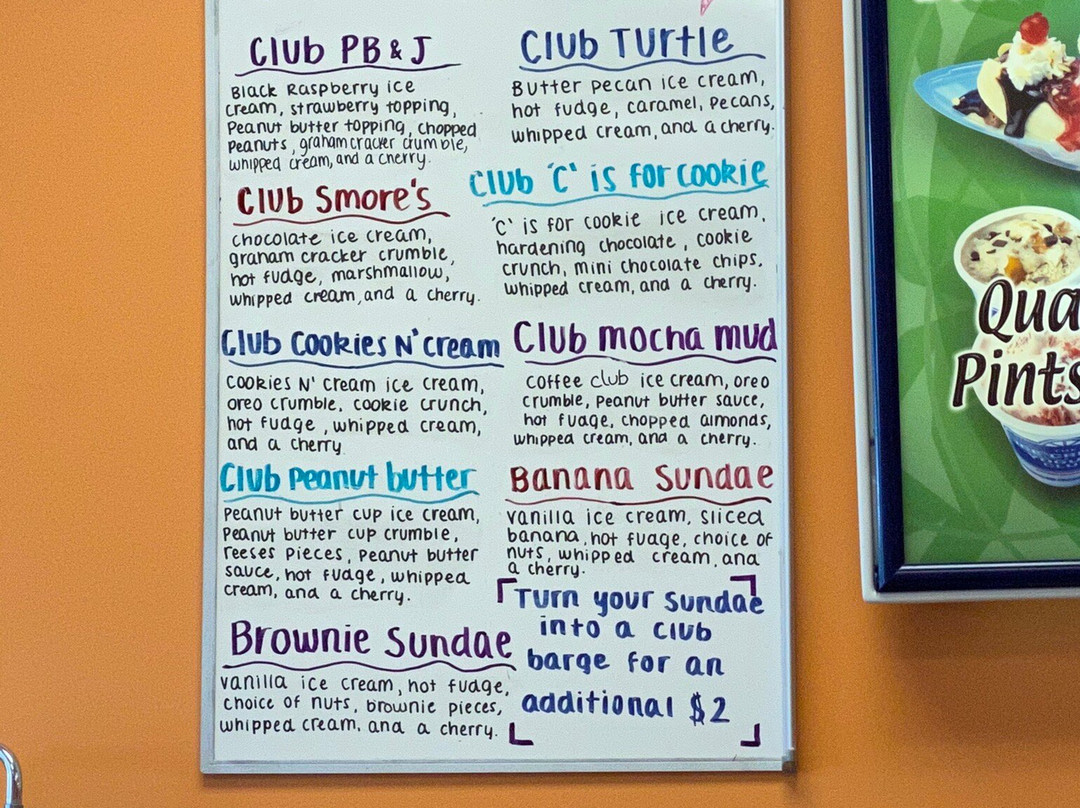 Club PB & J
Black Raspberry ice
cream, strawberry topping,
Peanut butter topping, chopped
Peanuts, graham cracker crumble,
whipped cream, and a cherry.
Club Smore's
chocolate ice cream,
graham cracker crumble,
hot fudge, marshmallow,
whipped cream, and a cherry.
Club Cookies N' cream
Cookies N' cream ice cream,
oreo crumble, cookie crunch,
hot fudge, whipped cream,
and a cherry
Club Peanut butter
Peanut butter cup ice cream,
Peanut butter cup crumble,
reeses pieces, peanut butter
sauce, hot fudge, whipped
cream, and a cherry.
Brownie Sundae
vanilla ice cream, hot fudge,
choice of nuts, brownie pieces,
whipped cream, and a cherry.
Club Turtle
Butter pecan ice cream,
hot fudge, caramel, pecans,
whipped cream, and a cherry.
Club 'C' is for cookie
'C' is for cookie ice cream,
hardening chocolate, cookie
crunch, mini chocolate chips,
whipped cream, and a cherry.
Club mocha mud
coffee club ice cream, oreo
crumble, peanut butter sauce,
hot fudge, chopped almonds,
whipped cream, and a cherry.
Banana Sundae
vanilla ice cream, sliced
banana, hot fudge, choice of
nuts, whipped cream, and
a cherry.
Turn your sundae
into a club
barge for an
additional $2
Qua
Pints